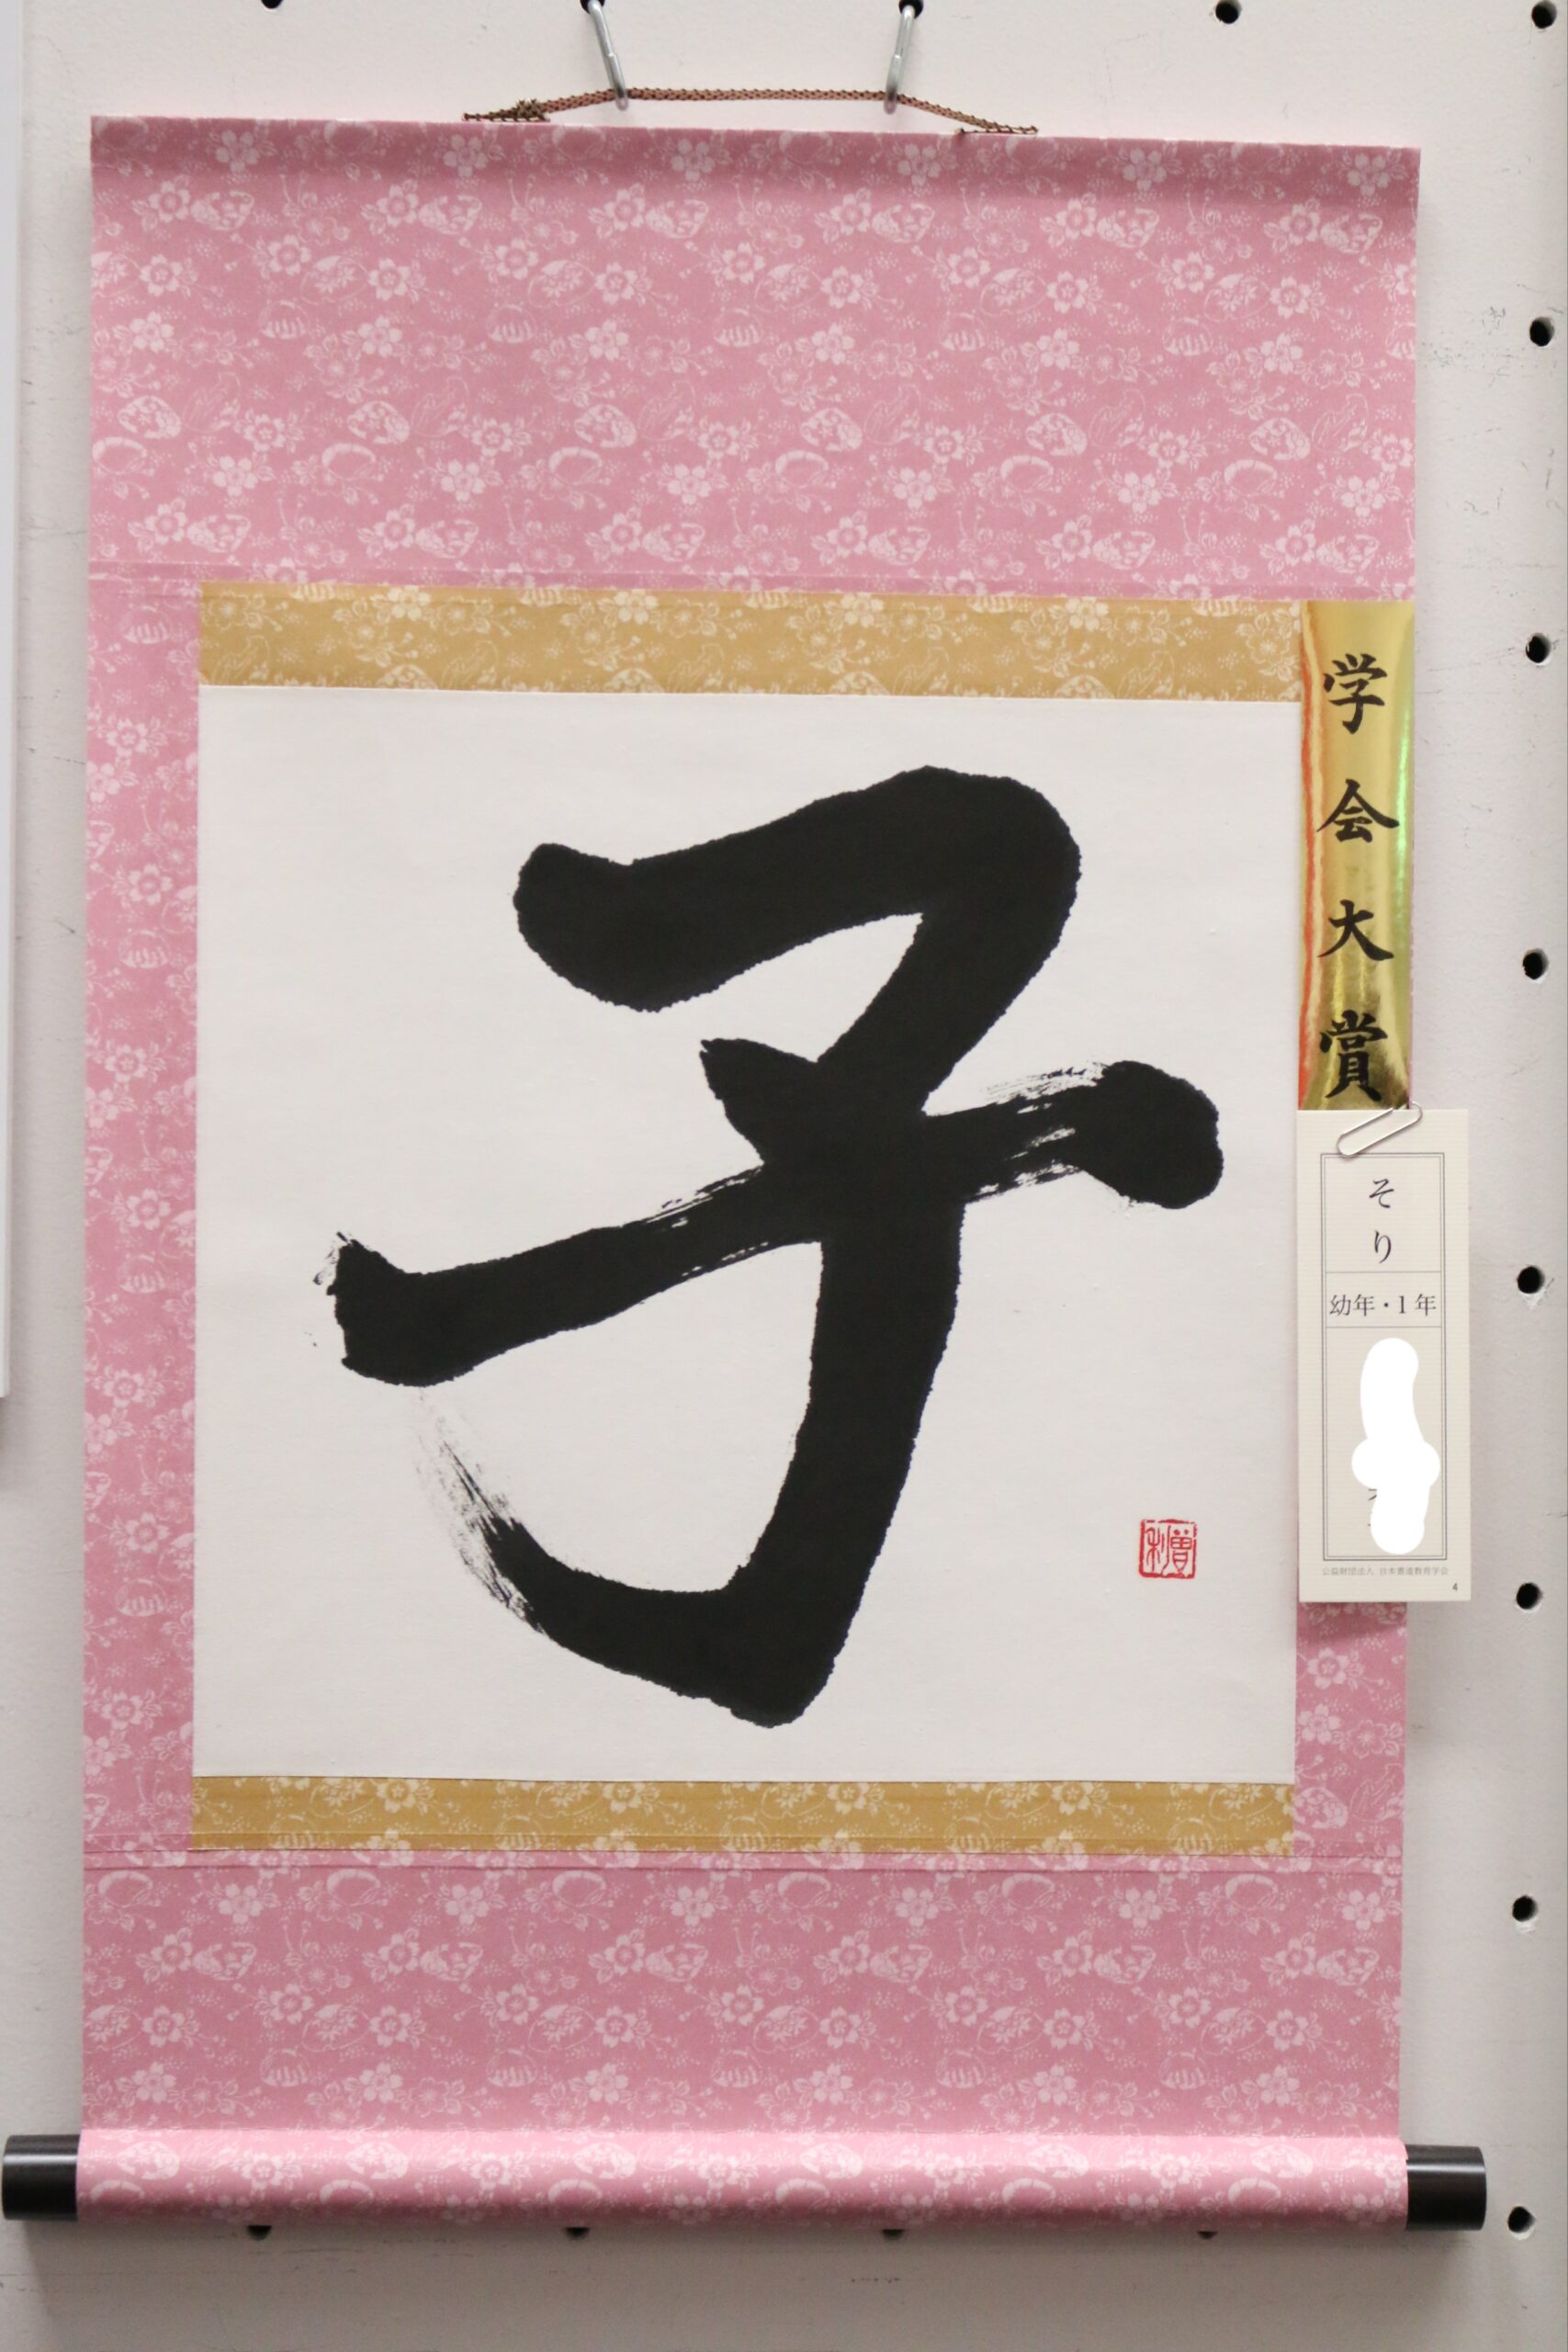 子
学会大賞
そり
幼年・1年
公益財団法人 日本書道教育学会
4